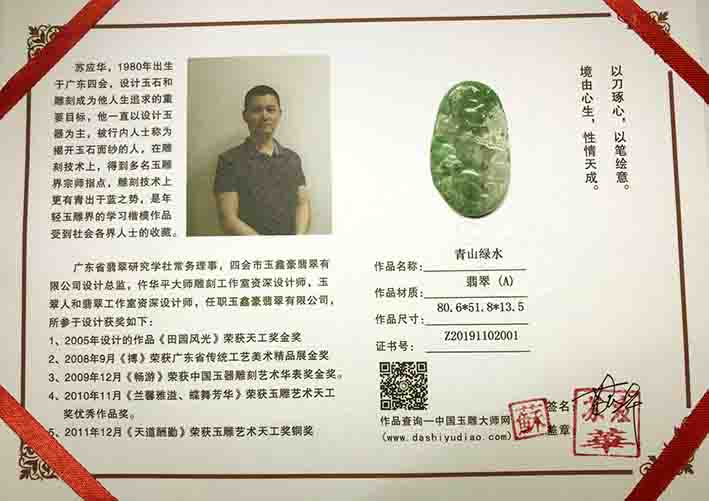 苏应华，1980年出生
于广东四会，设计玉石和
雕刻成为他人生追求的重
要目标，他一直以设计玉
器为主，被行内人士称为
揭开玉石面纱的人，在雕
刻技术上，得到多名玉雕
界宗师指点，雕刻技术上
更有青出于蓝之势，是年
轻玉雕界的学习楷模作品
受到社会各界人士的收藏。
广东省翡翠研究学社常务理事，四会市玉鑫豪翡翠有
限公司设计总监，仵华平大师雕刻工作室资深设计师，玉
翠人和翡翠工作室资深设计师，任职玉鑫豪翡翠有限公司，
所参于设计获奖如下：
1、2005年设计的作品《田园风光》荣获天工奖金奖
2、2008年9月《博》荣获广东省传统工艺美术精品展金奖
3、2009年12月《畅游》荣获中国玉器雕刻艺术华表奖金奖。
4、2010年11月《兰馨雅溢、蝶舞芳华》荣获玉雕艺术天工
奖优秀作品奖。
5、2011年12月《天道酬勤》荣获玉雕艺术天工奖铜奖
以刀琢心，以笔绘意。
境由心生，性情天成。
作品名称：青山绿水
作品材质：翡翠（A）
作品尺寸：80.6*51.8*13.5
证书号：Z20191102001
作品查询—中国玉雕大师网
(www.dashiyudiao.com)
蘇
签名：
盖章：
華